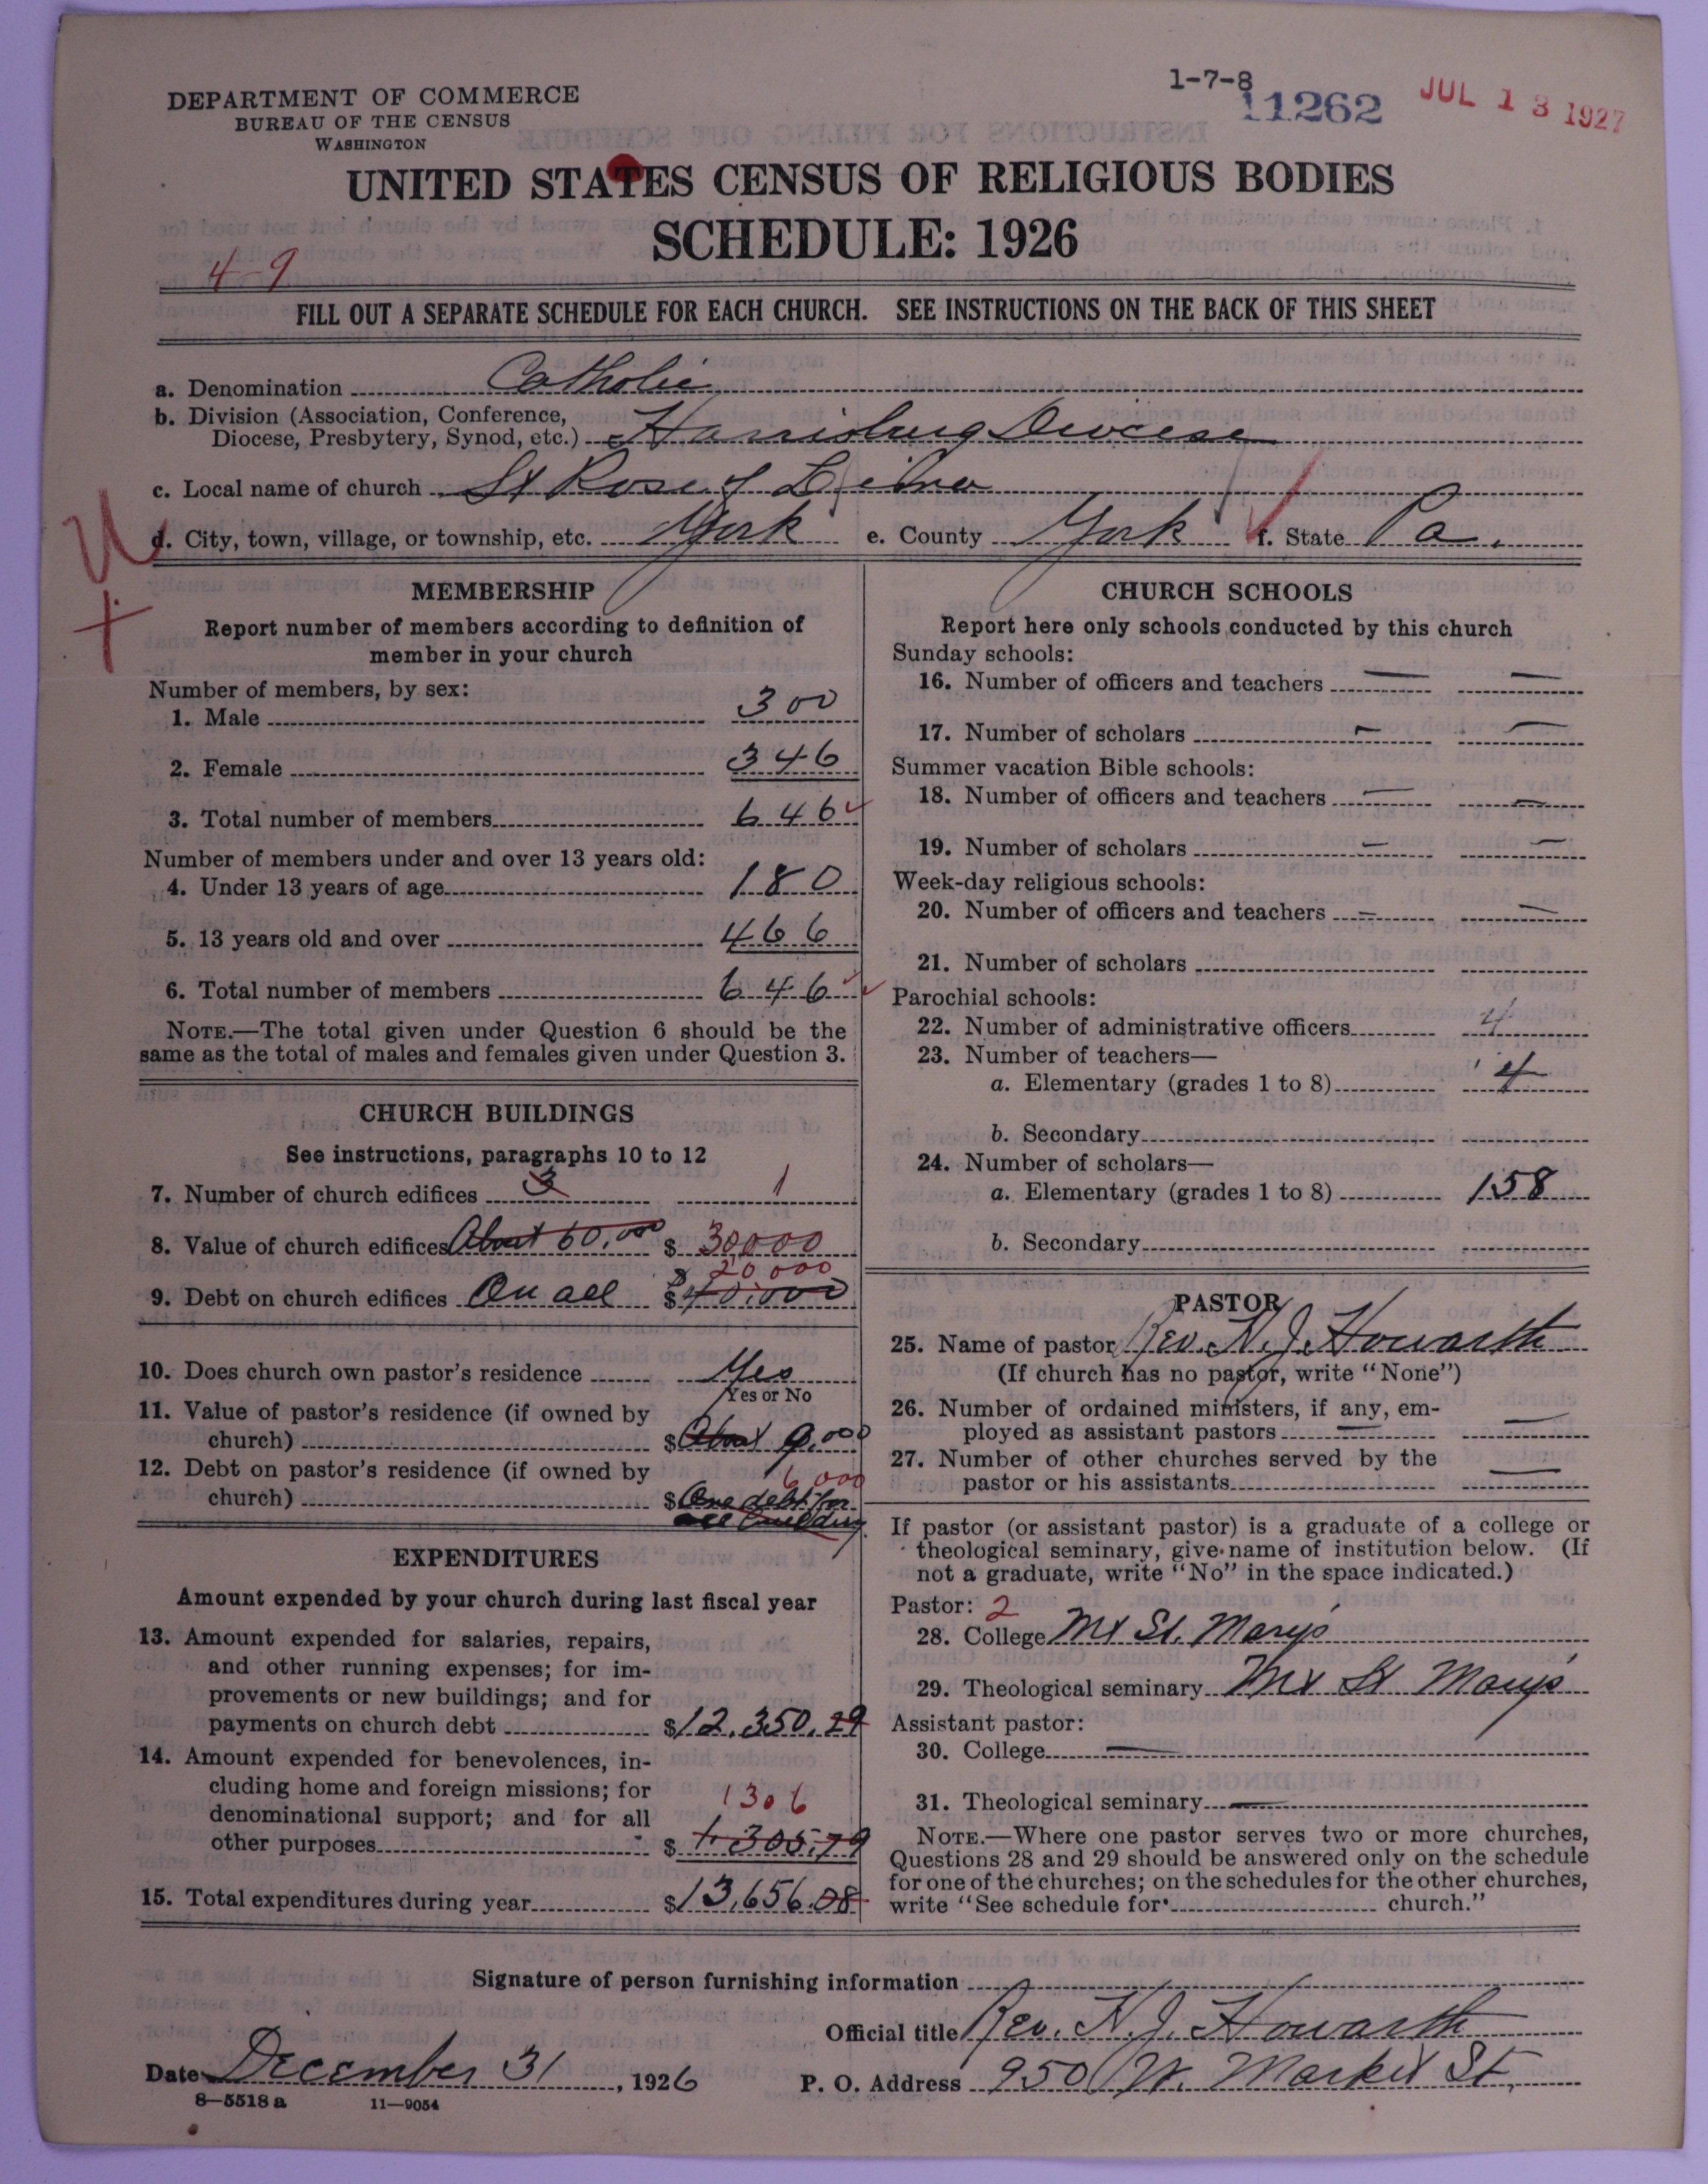 DEPARTMENT OF COMMERCE
BUREAU OF THE CENSUS
WASHINGTON
1-7-8
11262
JUL 13 1927
UNITED STATES CENSUS OF RELIGIOUS BODIES
SCHEDULE: 1926
4-9
FILL OUT A SEPARATE SCHEDULE FOR EACH CHURCH. SEE INSTRUCTIONS ON THE BACK OF THIS SHEET
a. Denomination Catholic
b. Division (Association, Conference,
Diocese, Presbytery, Synod, etc.) Harrisburg Diocese
c. Local name of church St Rose of Lima
d. City, town, village, or township, etc. York e. County York f. State Pa.
MEMBERSHIP
Report number of members according to definition of
member in your church
Number of members, by sex:
1. Male 300
2. Female 346
3. Total number of members 646
Number of members under and over 13 years old:
4. Under 13 years of age 180
5. 13 years old and over 466
6. Total number of members 646
NOTE.—The total given under Question 6 should be the
same as the total of males and females given under Question 3.
CHURCH BUILDINGS
See instructions, paragraphs 10 to 12
7. Number of church edifices 3 1
8. Value of church edifices About 60,000 $ 30,000
20 000
9. Debt on church edifices On all $ 40,000
10. Does church own pastor's residence Yes
Yes or No
11. Value of pastor's residence (if owned by
church) $ About 9,000
12. Debt on pastor's residence (if owned by
6,000
church) $ One debt for
all building
EXPENDITURES
Amount expended by your church during last fiscal year
13. Amount expended for salaries, repairs,
and other running expenses; for im-
provements or new buildings; and for
payments on church debt $12,350.29
14. Amount expended for benevolences, in-
cluding home and foreign missions; for
1306
denominational support; and for all
other purposes $ 1,305.79
15. Total expenditures during year $13,656.08
CHURCH SCHOOLS
Report here only schools conducted by this church
Sunday schools:
16. Number of officers and teachers — —
17. Number of scholars — —
Summer vacation Bible schools:
18. Number of officers and teachers — —
19. Number of scholars — —
Week-day religious schools:
20. Number of officers and teachers — —
21. Number of scholars
Parochial schools:
22. Number of administrative officers 4
23. Number of teachers—
a. Elementary (grades 1 to 8) 4
b. Secondary
24. Number of scholars—
a. Elementary (grades 1 to 8) 158
b. Secondary
PASTOR
25. Name of pastor Rev. H. J. Howarth
(If church has no pastor, write "None")
26. Number of ordained ministers, if any, em-
ployed as assistant pastors — —
27. Number of other churches served by the
pastor or his assistants —
If pastor (or assistant pastor) is a graduate of a college or
theological seminary, give name of institution below. (If
not a graduate, write "No" in the space indicated.)
Pastor: 2
28. College Mt St. Mary's
29. Theological seminary Mt St Mary's
Assistant pastor:
30. College —
31. Theological seminary —
NOTE.—Where one pastor serves two or more churches,
Questions 28 and 29 should be answered only on the schedule
for one of the churches; on the schedules for the other churches,
write "See schedule for church."
Signature of person furnishing information
Official title Rev. H. J. Howarth
Date December 31, 1926 P. O. Address 950 W. Market St.
8—5518 a 11—9054